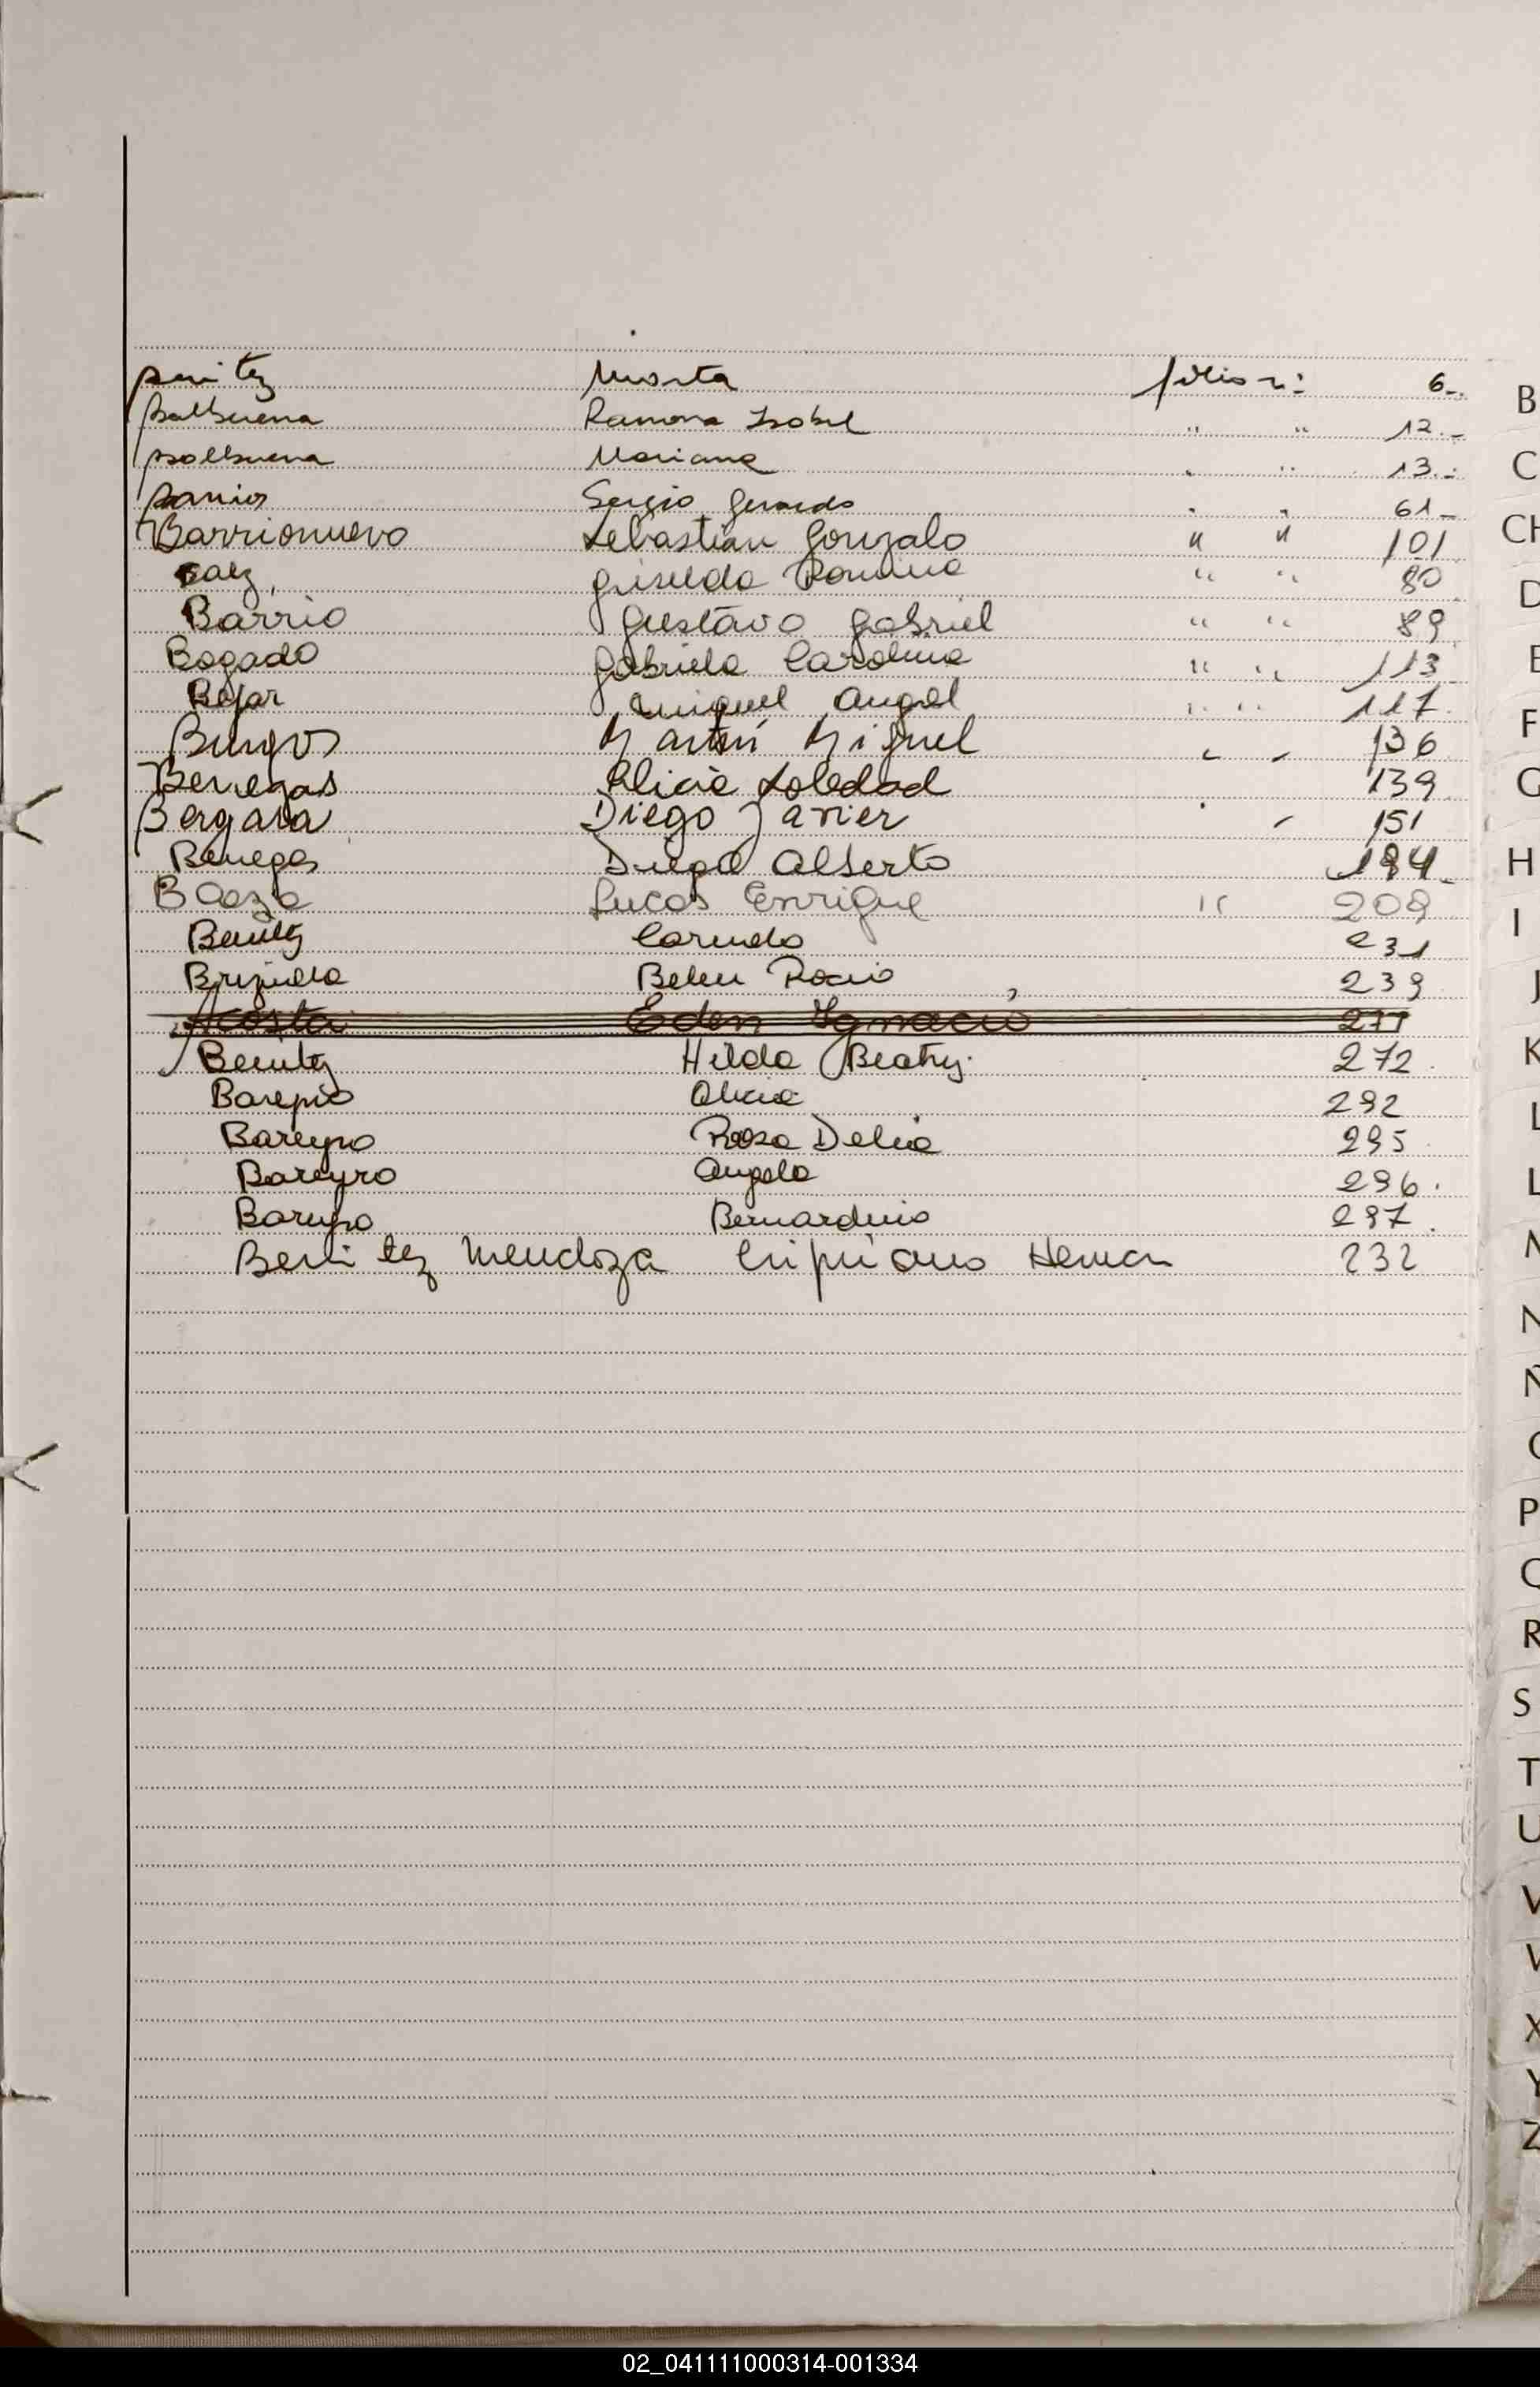 Benitez Marta folio n: 6-.
Balbuena Ramona Isabel " " 12.-
Balbuena Mariana " " 13.-
Barrios Sergio Gerardo " " 61-
Barrionuevo Sebastian Gonzalo " " 101
Baez, Griselda Romina " " 80
Barrio Gustavo Gabriel " " 89
Bogado Gabriela Carolina " " 113
Bejar Miguel Angel " " 117.
Burgos Martin Miguel " " 136
Benegas Alicia Soledad 139
Bergara Diego Javier " 151
Benegas Diego Alberto 194-
Baeza Lucas Enrique " 209
Benitez 231
Brizuela Belen Rocio 239
Acosta Eden Ygnacio 271
Benitez Hilda Beatriz. 272.
Bareyro Alicia 292
Bareyro Rosa Delia 295.
Bareyro Angela 296.
Bareyro Bernardino 297.
Benitez Mendoza Cipriano Hernan 232
B
C
CH
D
E
F
G
H
I
J
K
L
L
M
N
Ñ
O
P
Q
R
S
T
U
V
X
Y
Z
02_041111000314-001334